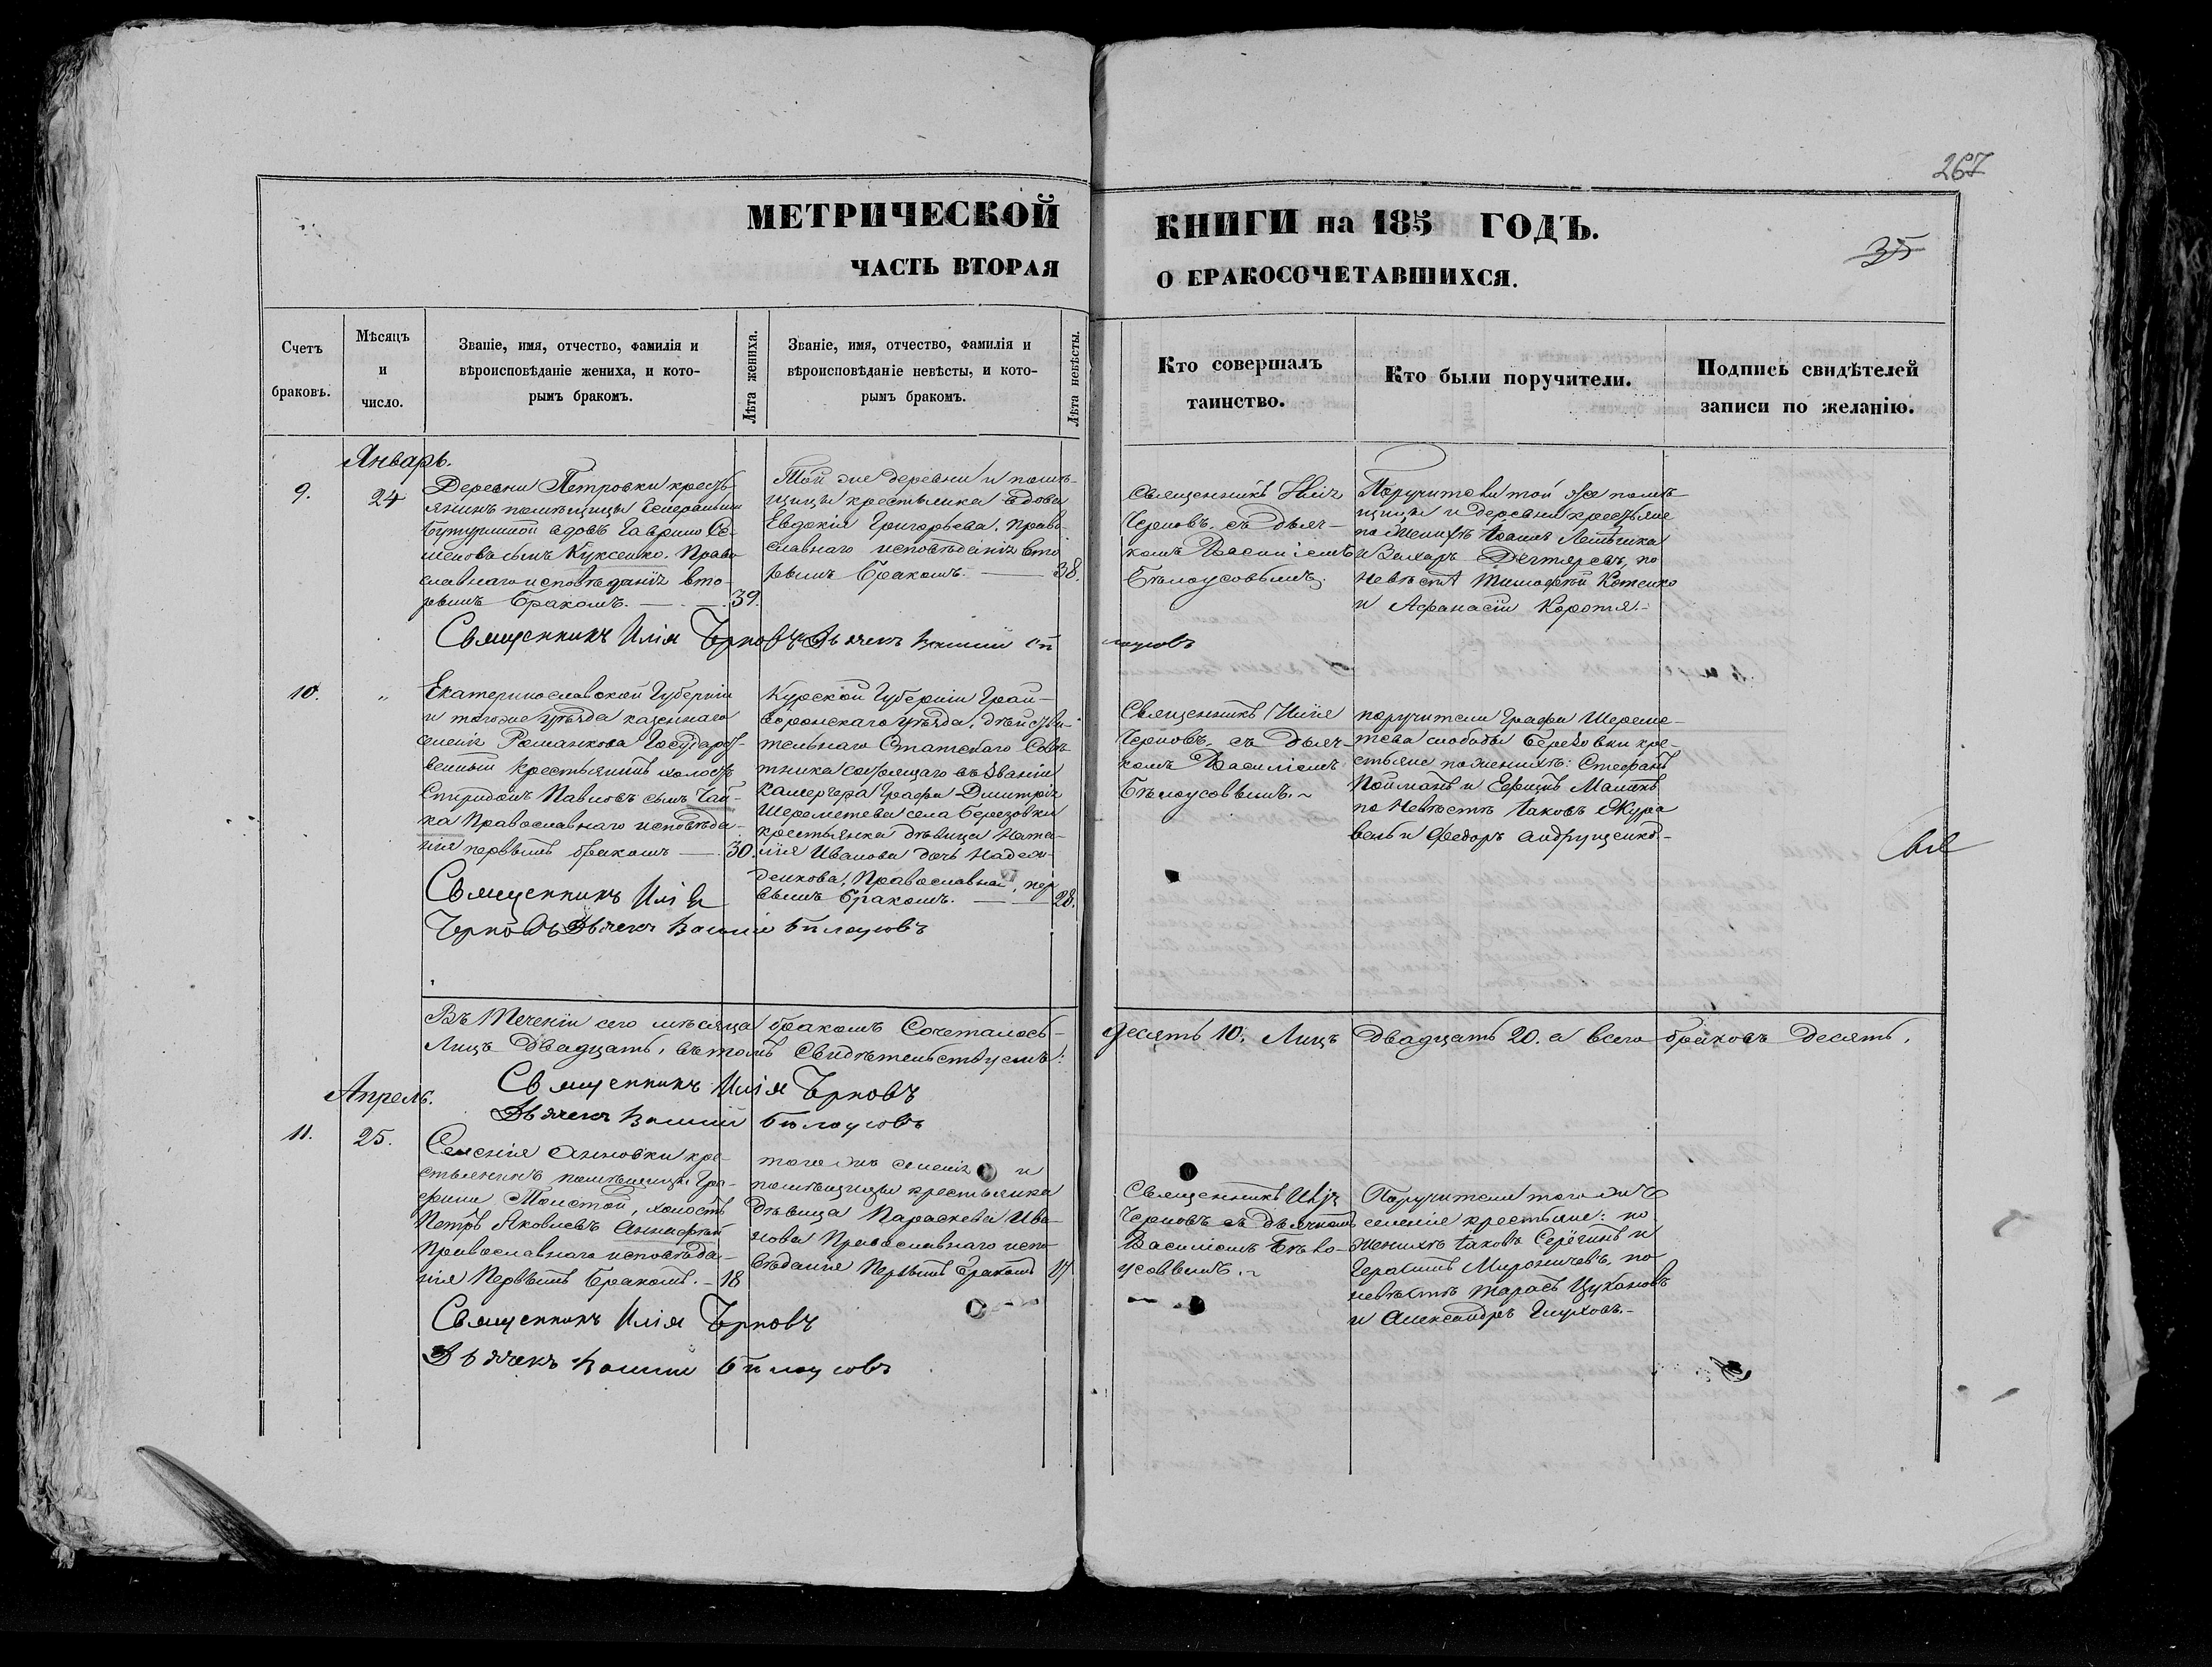 267
МЕТРИЧЕСКОЙ
КНИГИ на 185 ГОДЪ.
35
ЧАСТЬ ВТОРАЯ
О БРАКОСОЧЕТАВШИХСЯ.
Счетъ
браковъ.
Мѣсяцъ
и
число.
Званіе, имя, отчество, фамилія и
вѣроисповѣданіе жениха, и кото-
рымъ бракомъ.
Лѣта жениха.
Званіе, имя, отчество, фамилія и
вѣроисповѣданіе невѣсты, и кото-
рымъ бракомъ.
Лѣта невѣсты.
Кто совершалъ
таинство.
Кто были поручители.
Подпись свидѣтелей
записи по желанію.
Январь.
9.
24
Деревни Петровки кресть-
янинъ помѣщицы Генеральши
Бутурлиной вдовъ Гаврило Се-
меновъ сынъ Куксенко. Право
славнаго исповѣданія вто-
рымъ бракомъ. — 39.
Той же деревни и помѣ-
щицы крестьянка вдова
Евдокія Григорьева. Право
славнаго исповѣданія вто
рымъ бракомъ. — 38.
Священникъ Илія
Черновъ. съ дьяч-
комъ Василіемъ
Бѣлоусовымъ.
Поручители той же помѣ
щицы и деревни крестьяне
по женихѣ
и Захаръ Дегтяревъ, по
невѣстѣ Тимофѣй Котенко
и Афанасій Коротя.-
Священникъ Илія Чрновъ Дьячекъ Василій Бѣ
лоусовъ
10.
"
Екатеринославской Губерніи
и тогоже уѣзда казеннаго
селенія Романкова Государст-
венный крестьянинъ холостъ
Спиридонъ Павловъ сынъ Чай-
ка Православнаго исповѣда-
нія первымъ бракомъ — 30.
Курской Губерніи Грай-
воронскаго уѣзда, дѣйстви-
тельнаго Статскаго Совѣ
тника состоящаго въ званіи
камергера Графа Дмитрія
Шереметева села Березовки
крестьянка дѣвица Ната-
лія Иванова дочь Надеж-
денкова, Православная, пер
вымъ бракомъ. — 28.
Священникъ Илія
Черновъ, съ дьяч-
комъ Василіемъ
Бѣлоусовымъ.~
поручители Графа Шереме-
тева слободы Березовки кре-
стьяне по женихѣ: Стефанъ
Пойманъ и Ефимъ
по невѣстѣ Іаковъ Жура
вель и Федоръ Андрущенко.-
Священникъ Илія
Чрновъ Дьячекъ Василій Бѣлоусовъ
Въ теченіи сего мѣсяца бракомъ сочеталось десять 10. Лицъ двадцать 20. а всего браковъ десять,
Лицъ двадцать, въ томъ свидѣтельствуемъ:
Священникъ Илія Чрновъ
Дьячекъ Василій Бѣлоусовъ
Апрель.
11.
25.
Селенія Анновки кре-
стьянинъ помѣщицы Гра-
фини Толстой, холостъ
Петръ Яковлевъ
Православнаго исповѣда-
нія первымъ бракомъ. – 18
того же селенія и
помѣщицы крестьянка
дѣвица Параскева Ива-
нова Православнаго испо
вѣданія первымъ бракомъ 17
Священникъ Илія
Черновъ съ дьячкомъ
Василіемъ Бѣло-
усовымъ.~
Поручители того же
селенія крестьяне: по
женихѣ Іаковъ Серёгинъ и
Герасимъ Мироничевъ, по
невѣстѣ Тарасъ Цукановъ
и Александръ Глуховъ.-
Священникъ Илія Чрновъ
Дьячекъ Василій Бѣлоусовъ